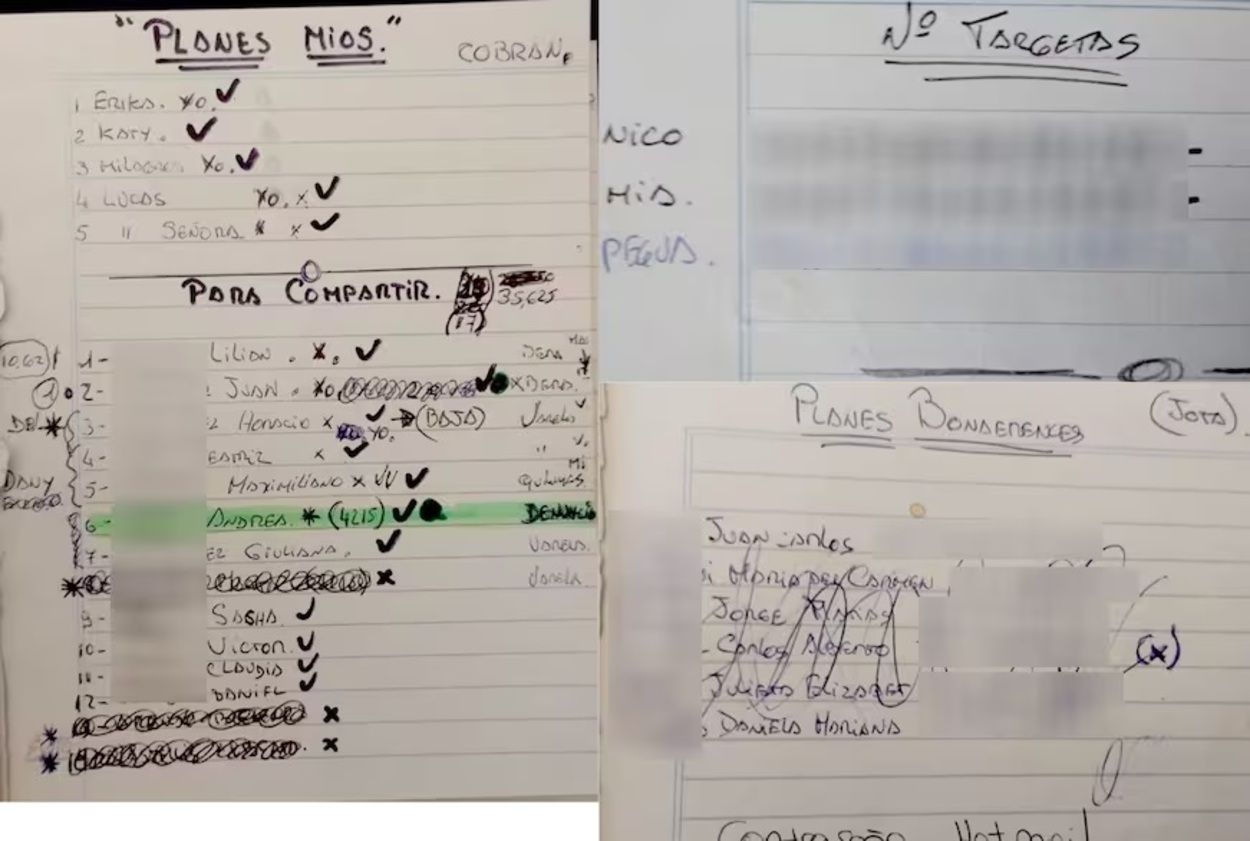 "PLANES MIOS."
COBRAN.
1 ERIKA. YO. ✔
2 KATY. ✔
3 MILAGROS YO. ✔
4 LUCAS YO. x ✔
5 " SEÑORA * x ✔
PARA COMPARTIR.
35,625
(17)
10,62
1- LILIAN. X. ✔
① 2- JUAN. YO. ✔ X
3- HORACIO X ✔ (BAJA) VARELA
YO.
4- X ✔ "
DANY
5- MAXIMILIANO X VV ✔ QUILMES
6- ANDREA. * (4215) ✔ DENUNCIA
7- EZ GIULIANA. ✔ VARELA.
* X VARELA.
9- SASHA. ✔
10- VICTOR. ✔
11- CLAUDIO ✔
12- DANIEL ✔
* X
* X
Nº TARGETAS
NICO -
MIA. -
PEGUA.
PLANES BONAERENCES (JOTA).
JUAN CARLOS
MARIA DEL CARMEN
JORGE
CARLOS ALBERTO (X)
JULIETA ELIZABET
DANIELA MARIANA
HOTMAIL